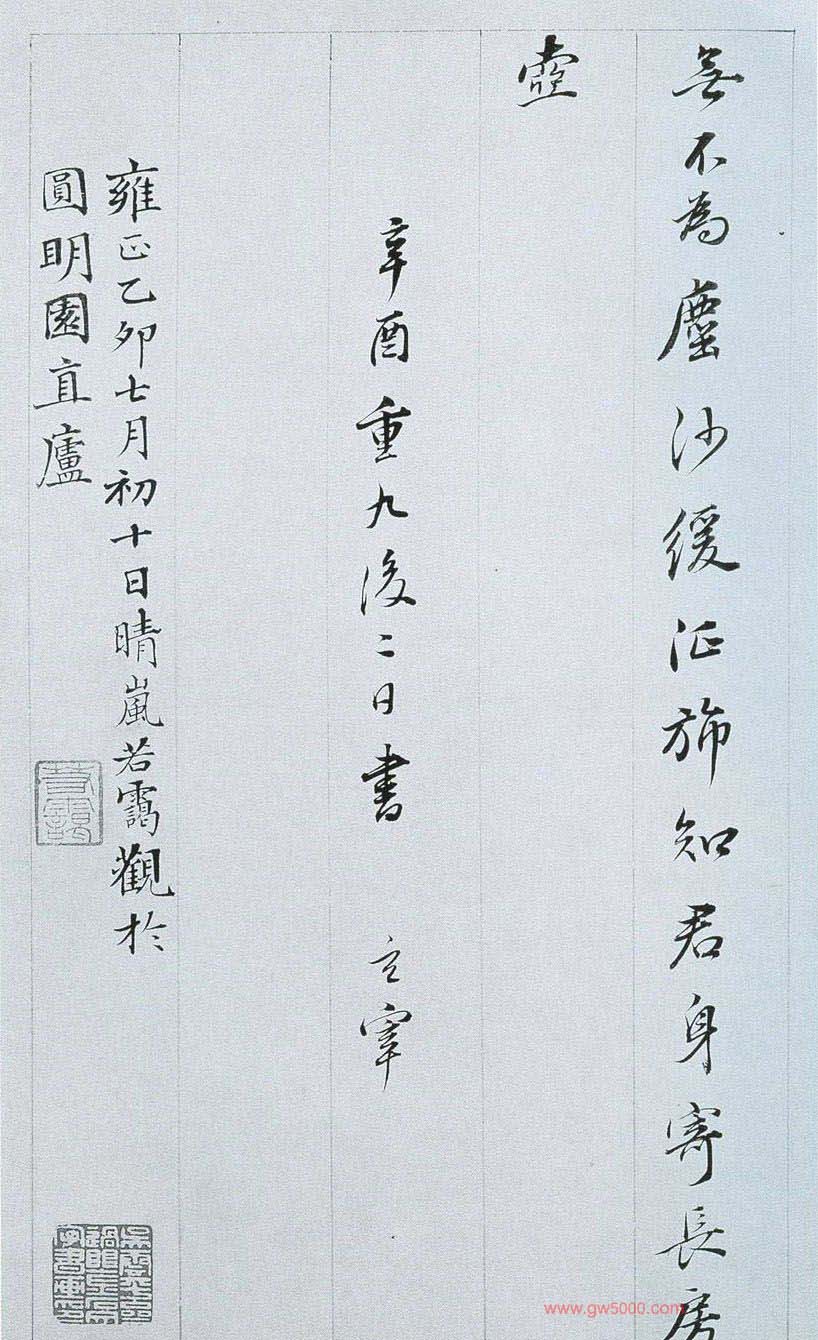 無不為塵沙緩征旆知君身寄長房
壺
辛酉重九後二日書 玄宰
雍正乙卯七月初十日晴嵐若靄觀於
圓明園直廬
若靄
www.gw5000.com